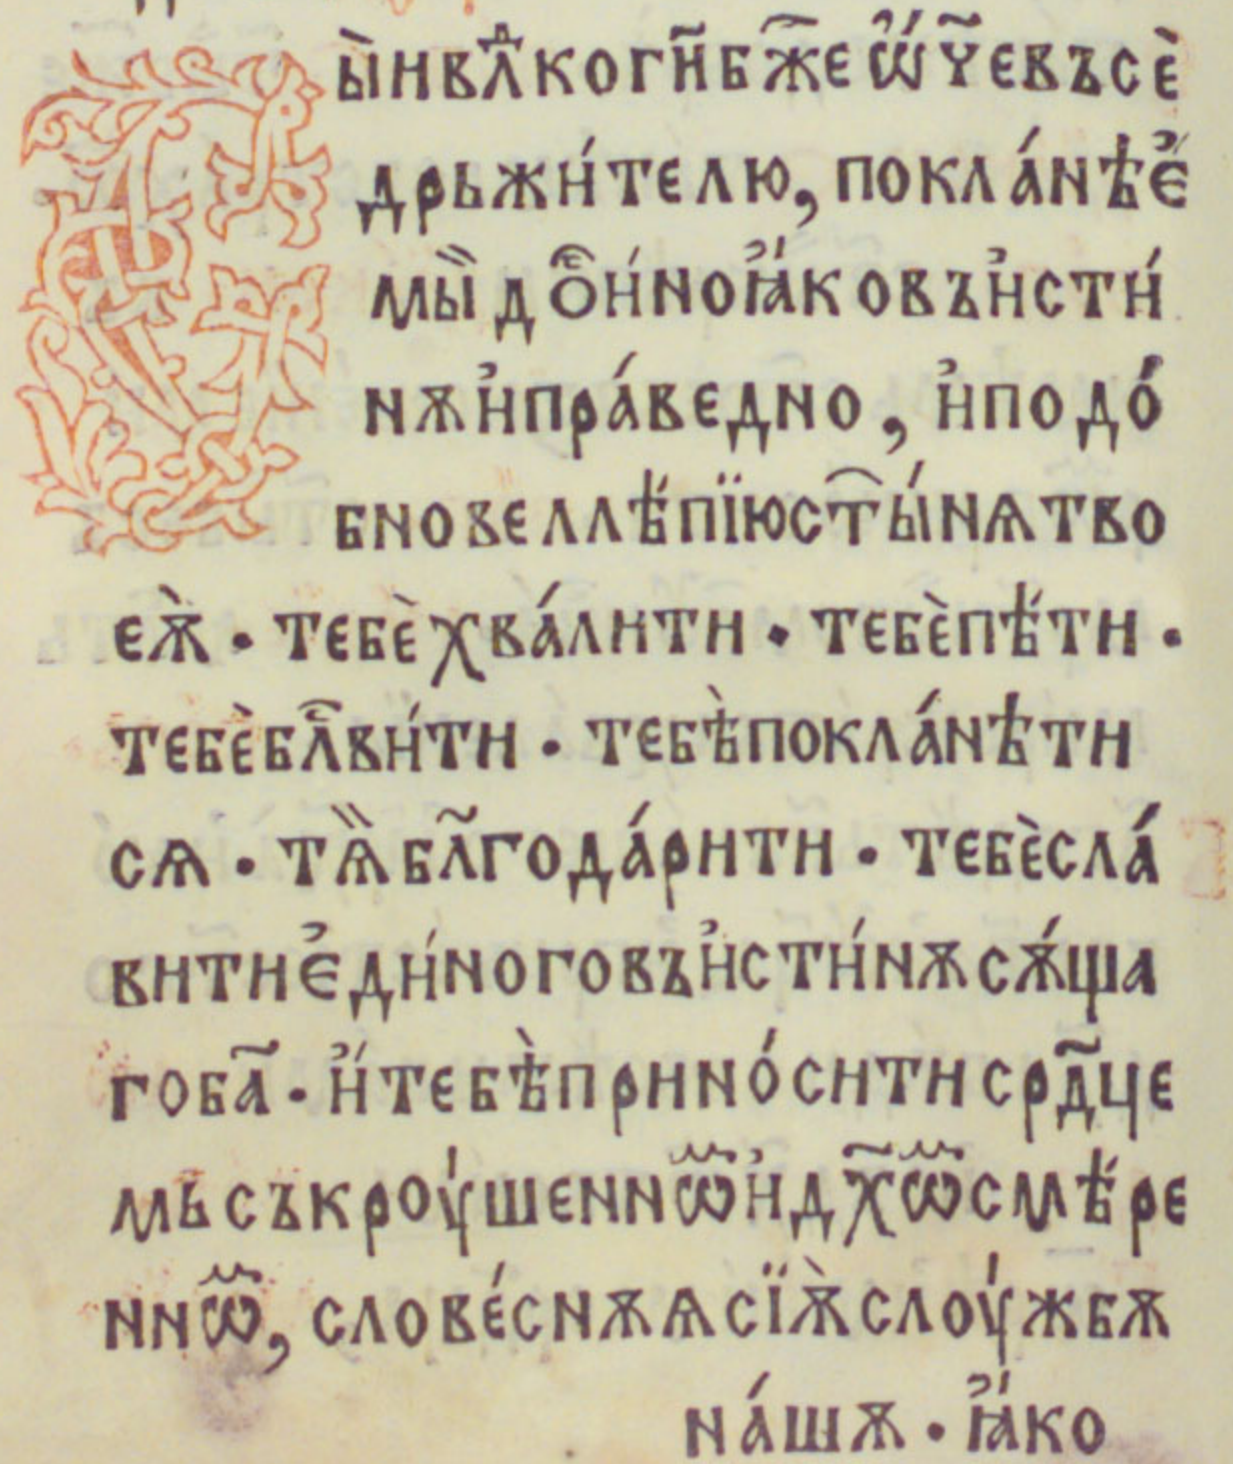 Сы̀ивл҃ⷣкогн҃бж҃еѿ́ч҃евъсѐ
дрьжи́телю, покла́нѣе҆́
мы̏ дⷭ҇ои́ноꙗ҆́ковъи҆сти́
нѫи҆пра́ведно, и҆подо́
бновеллѣ́пїюст҃ы́нѧтво
еѫ̀ · тебѐхва́лити · тебѐпѣ́ти ·
тебѐблⷭ҇ви́ти · тебѣ̀покла́нѣти
сѧ · тѧ̏бл҃года́рити · тебѐсла́
витиє҆ди́ноговъи҆сти́нѫсѫ́ща
гоба҃ · и҆́тебѣ̀прино́ситисрⷣ҃це
мьсъкроу́шеннѡⷨи҆дх҃ѡⷨсмѣ́ре
ннѡⷨ, слове́снѫѧсїѫ̀слоу́жбѫ
на́шѫ · ꙗ҆́ко